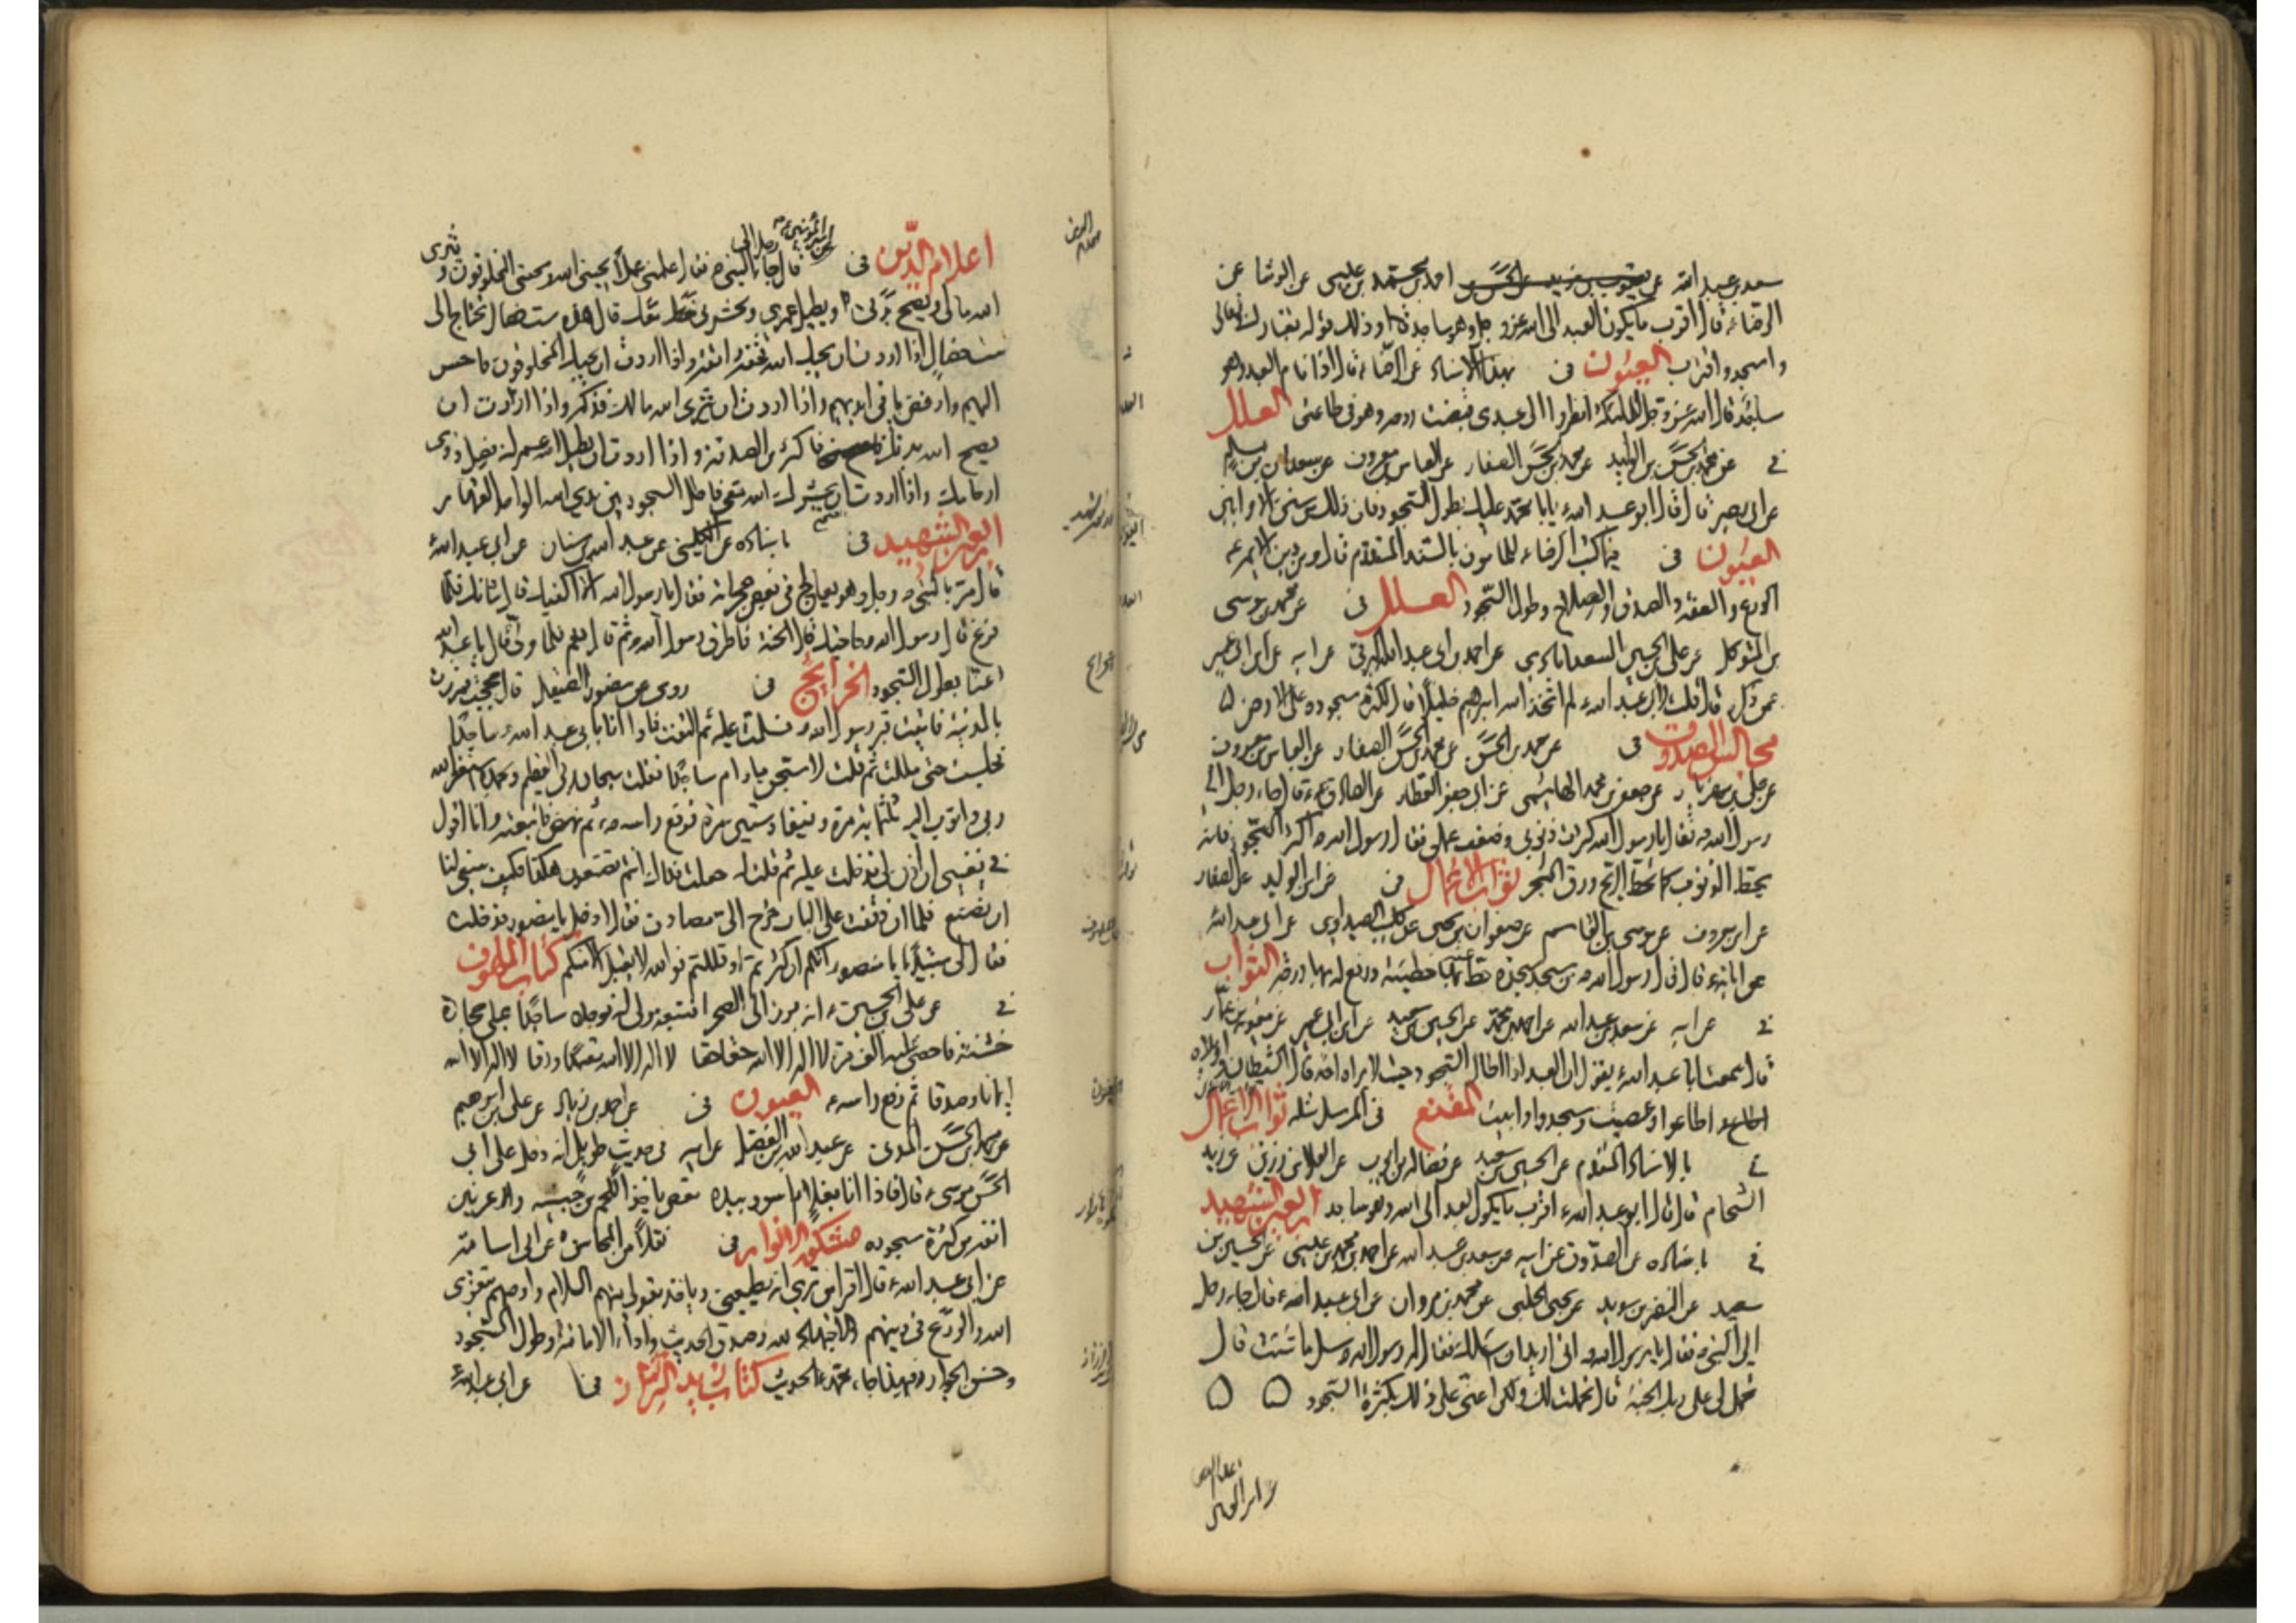 سعد بن عبد الله عن يعقوب بن يزيد عن الحسن بن احمد بن محمد بن عيسى عن الوشا عن
الرضاء قال اقرب ما يكون العبد الى الله عز و جل وهو ساجد و ذلك قوله تبارك و تعالى
واسجد واقترب العيون فى بهذا الاسناد عن الرضاء قال اذا نام العبد وهو
ساجد قال الله عز و جل للملائكة انظروا الى عبدى قبضت روحه وهو فى طاعتى العلل
فى عن محمد بن الحسن بن الوليد عن محمد بن الحسن الصفار عن العباس بن معروف عن سعدان بن مسلم
عن ابى بصير قال قال ابو عبد الله يا با محمد عليك بطول السجود فان ذلك من سنن الاوابين
العيون فى فيما كتب الرضاء للمامون بالسند المتقدم قال و من دين الائمة
الورع والعفة والصدق والصلاح وطول السجود العلل فى عن محمد بن موسى
بن المتوكل عن على بن الحسين السعدابادى عن احمد بن ابى عبد الله البرقى عن ابيه عن ابن ابى عمير
عمن ذكره قال قلت لابى عبد الله لم اتخذ الله ابراهيم خليلا قال لكثرة سجوده على الارض
مجالس الصدوق فى عن محمد بن الحسن عن محمد بن الحسن الصفار عن العباس بن معروف
عن على بن مهزيار عن جعفر بن محمد الهاشمى عن ابى جعفر العطار عن الصادق قال جاء رجل الى
رسول الله فقال يا رسول الله كثرت ذنوبى وضعف عملى فقال رسول الله اكثر السجود فانه
يحط الذنوب كما تحط الريح ورق الشجر ثواب الاعمال فى عن ابن الوليد عن الصفار
عن ابن معروف عن موسى بن القاسم عن صفوان بن يحيى عن كليب الصيداوى عن ابى عبد الله
عن ابائه قال قال رسول الله من سجد سجدة حط عنه بها خطيئة ورفع له بها درجة الثواب
فى عن ابيه عن سعد بن عبد الله عن احمد بن محمد عن الحسين بن سعيد عن ابن ابى عمير عن معوية بن عمار
قال سمعت ابا عبد الله يقول ان العبد اذا اطال السجود حيث لا يراه احد قال الشيطان واويلاه
اطاعوا وعصيت وسجدوا وابيت المقنع فى المرسل مثله ثواب الاعمال
فى بالاسناد المتقدم عن الحسين بن سعيد عن فضالة بن ايوب عن العلاء بن رزين عن زيد
الشحام قال قال ابو عبد الله اقرب ما يكون العبد الى الله وهو ساجد اربعين الشهيد
فى باسناده عن الصدوق عن ابيه عن سعد بن عبد الله عن احمد بن محمد بن عيسى عن الحسين بن
سعيد عن النضر بن سويد عن يحيى الحلبى عن محمد بن مروان عن ابى عبد الله قال جاء رجل
الى النبى فقال يا رسول الله انى اريد ان اسئلك فقال له رسول الله سل ما شئت قال
تحمل لى على ربك الجنة قال تحملت لك ولكن اعنى على ذلك بكثرة السجود
اعلام الدين فى عن امير المؤمنين قال جاء رجل الى النبى فقال علمنى عملا يحبنى الله ويحبنى المخلوقون ويثرى
الله مالى ويصح بدنى ويطيل عمرى ويحشرنى معك فقال هذه ست خصال تحتاج الى
ست خصال اذا اردت ان يحبك الله فخفه واتقه واذا اردت ان يحبك المخلوقون فاحسن
اليهم وارفض ما فى ايديهم واذا اردت ان يثرى الله مالك فزكه واذا اردت ان
يصح الله بدنك فاكثر من الصدقة واذا اردت ان يطيل الله عمرك فصل ذوى
ارحامك واذا اردت ان يحشرك الله معى فاطل السجود بين يدى الله الواحد القهار
اربعين الشهيد فى باسناده عن الكلينى عن عبد الله بن سنان عن ابى عبد الله
قال مر بالنبى رجل وهو يعالج فى بعض حجراته فقال يا رسول الله الا اكفيك قال شانك فلما
فرغ قال رسول الله حاجتك قال الجنة فاطرق رسول الله ثم قال نعم فلما ولى قال يا عبد الله
اعنا بطول السجود الخرايج فى روى عن منصور الصيقل قال حججت فمررت
بالمدينة فاتيت قبر رسول الله فسلمت عليه ثم التفت فاذا انا بابى عبد الله ساجدا
فجلست حتى مللت ثم قلت لاسبحن ما دام ساجدا فقلت سبحان ربى العظيم وبحمده استغفر الله
ربى واتوب اليه ثلثمائة مرة ونيفا وستين مرة فرفع راسه ثم نهض فاتبعته وانا اقول
فى نفسى ان اذن لى فدخلت عليه ثم قلت له جعلت فداك انتم تصنعون هكذا فكيف ينبغى لنا
ان نصنع فلما ان وقفت على الباب خرج الى مصادف فقال ادخل يا منصور فدخلت
فقال لى مبتدئا يا منصور انكم ان كثرتم او قللتم فوالله لا يقبل الا منكم كتاب الملهوف
فى عن على بن الحسين انه برز الى الصحراء فتبعه مولى له فوجده ساجدا على حجارة
خشنة فاحصى عليه الف مرة لا اله الا الله حقا حقا لا اله الا الله تعبدا ورقا لا اله الا الله
ايمانا وصدقا ثم رفع راسه العيون فى عن احمد بن زياد عن على بن ابراهيم
عن محمد بن الحسن المدنى عن عبد الله بن الفضل عن ابيه فى حديث طويل انه دخل على ابى
الحسن موسى قال فاذا انا بغلام اسود بيده مقص ياخذ اللحم من جبينه وعرنين
انفه من كثرة سجوده مشكوة الانوار فى نقلا من المحاسن عن ابى اسامة
عن ابى عبد الله قال اقرا من ترى انه يطيعنى وياخذ بقولى منهم السلام واوصهم بتقوى
الله والورع فى دينهم والاجتهاد لله وصدق الحديث واداء الامانة وطول السجود
وحسن الجوار فبهذا جاء محمد الحديث كتاب زيد النرسى عن ابى عبد الله